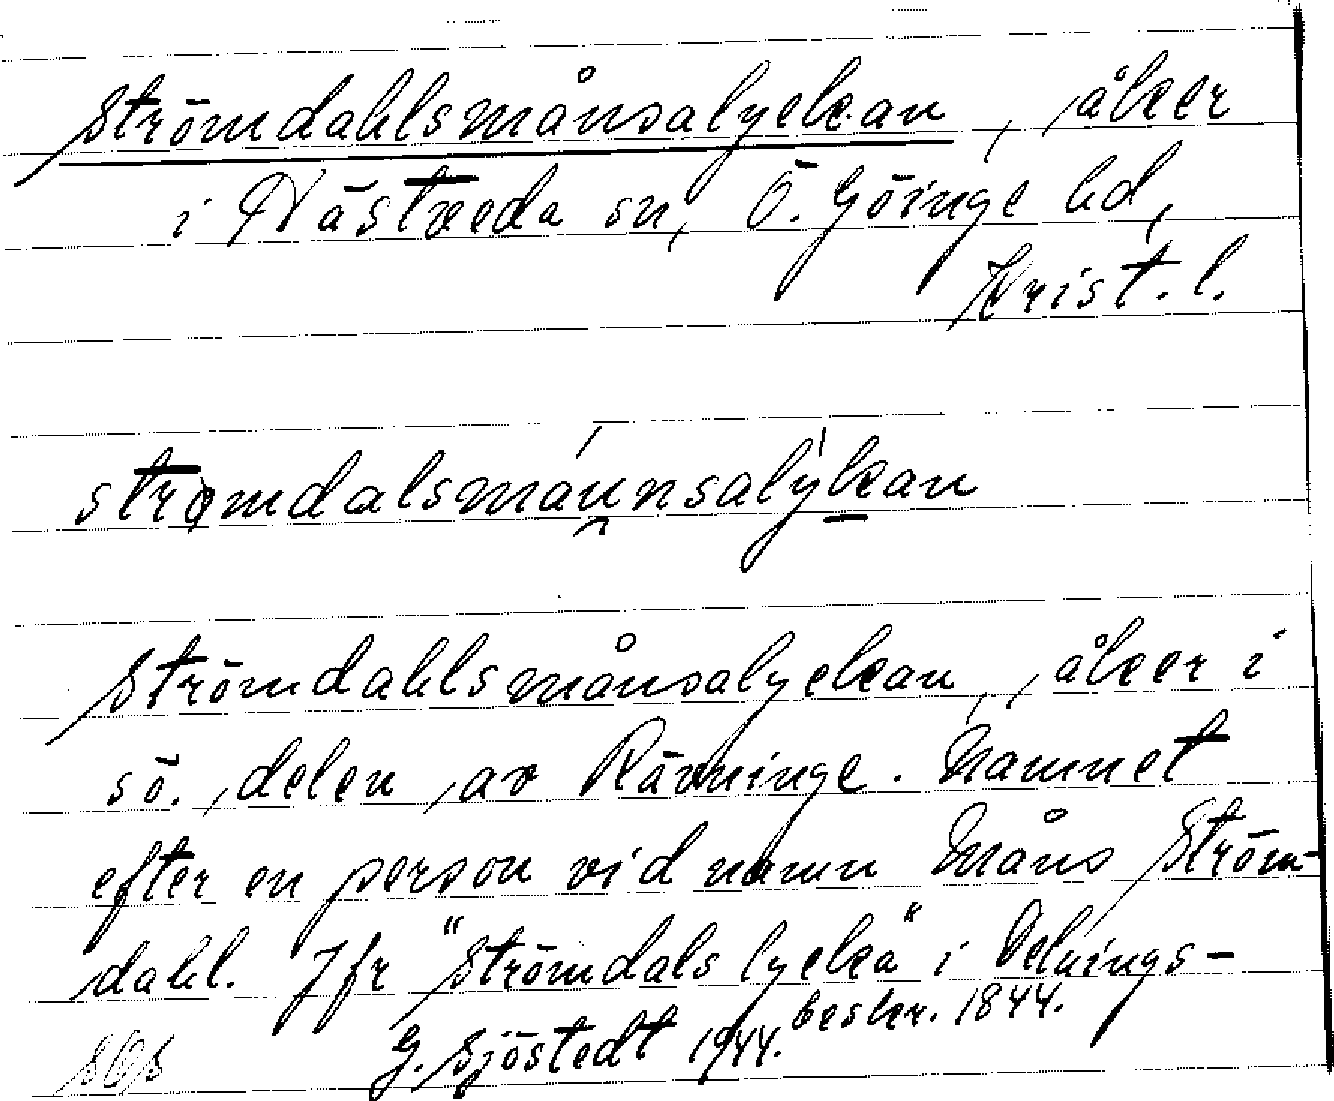 Strömdahlsmånsalyckan, åker
i Nästveda sn, Ö. Göinge hd,
Krist. l.
strømdalsmaunsalýkan
Strömdahlsmånsalyckan, åker i
sö. delen av Rävninge. Namnet
efter en person vid namn Måns Ström-
dahl. Jfr "Strömdals lycka" i Delnings-
beskr. 1844.
SOS G. Sjöstedt 1944.